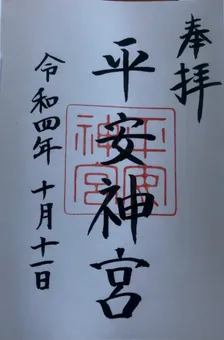 奉拝
平安神宮
平安
神宮
令和四年 十月十一日